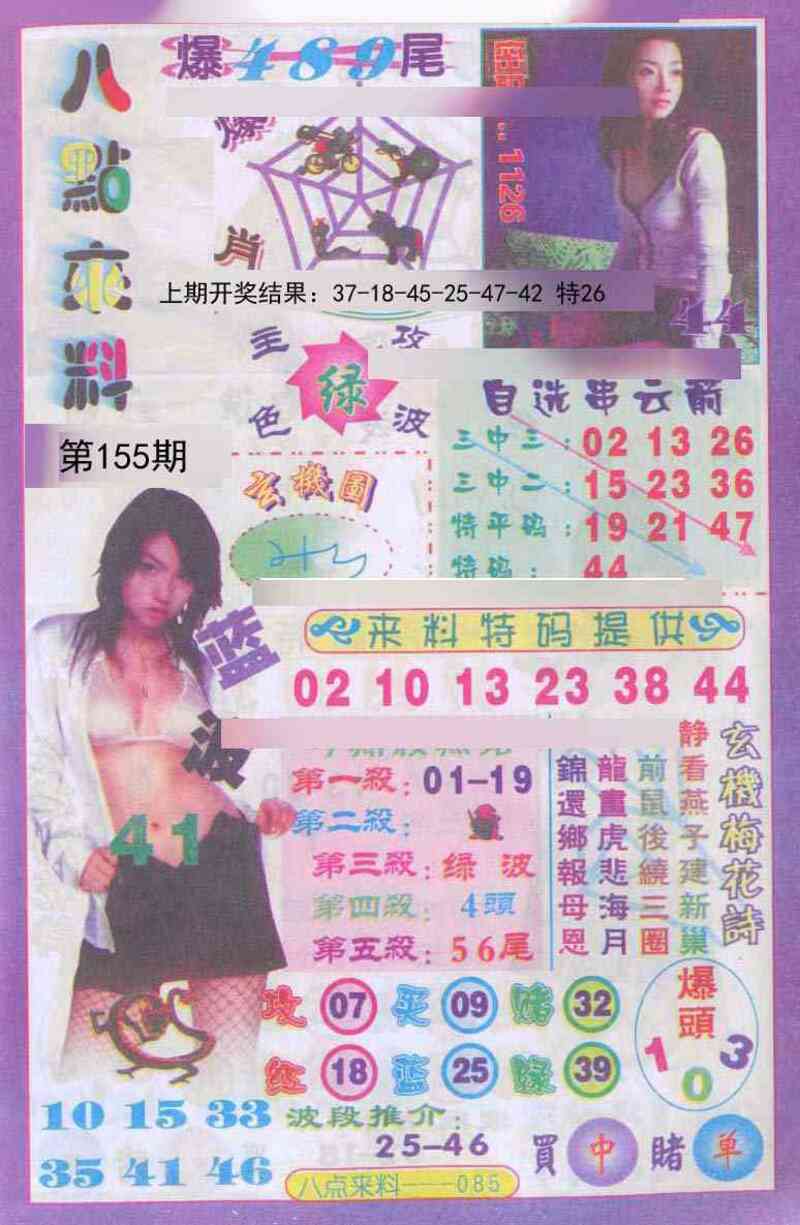 八點來料
爆489尾
爆
肖
佳
1126
44
上期开奖结果：37-18-45-25-47-42 特26
主攻
绿
色波
第155期
自选串云箭
三中三：02 13 26
三中二：15 23 36
特平码：19 21 47
特码：44
玄機圖
蓝波
41
来料特码提供
02 10 13 23 38 44
第一殺：01-19
第二殺：
第三殺：绿波
第四殺：4頭
第五殺：56尾
玄機梅花詩
静看燕子建新巢
前鼠後繞三圈
龍畫虎悲海月
錦還鄉報母恩
攻 07 买 09 赌 32
红 18 蓝 25 绿 39
爆頭
1 0 3
10 15 33
35 41 46
波段推介：
25-46
買中 賭单
八点来料——085